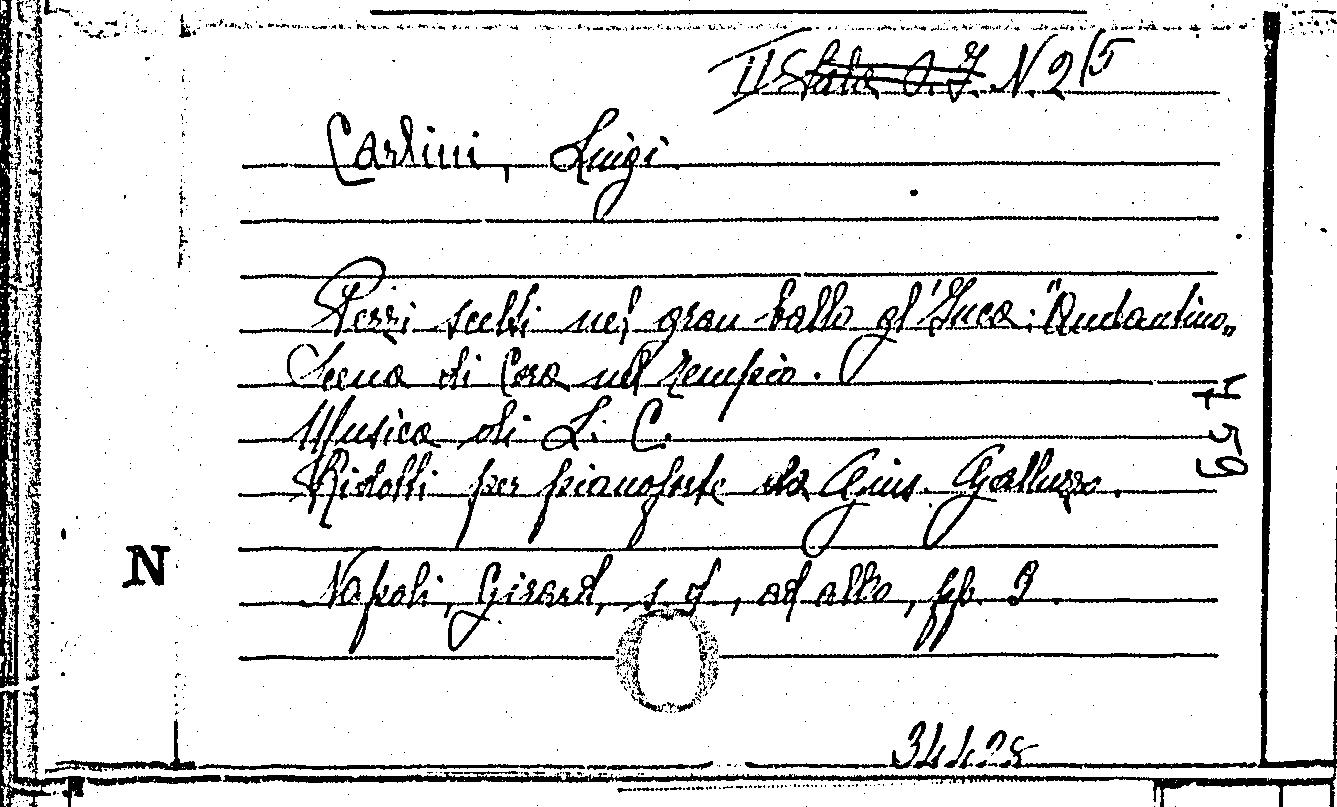 II Sala O. I. N. 2/5
Carlini, Luigi
Pezzi scelti nel gran ballo gl'Inca: "Andantino"
Scena di Cora nel tempio.
Musica di L. C.
Ridotti per pianoforte da Gius. Galluzzo.
Napoli, Girard, s. d., ad albo, pp. 3.
N
459
34428